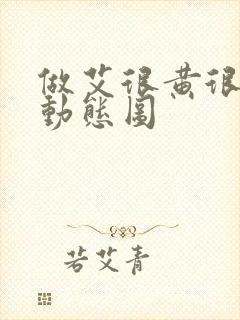 做艾很黄很
動態圖
若艾青